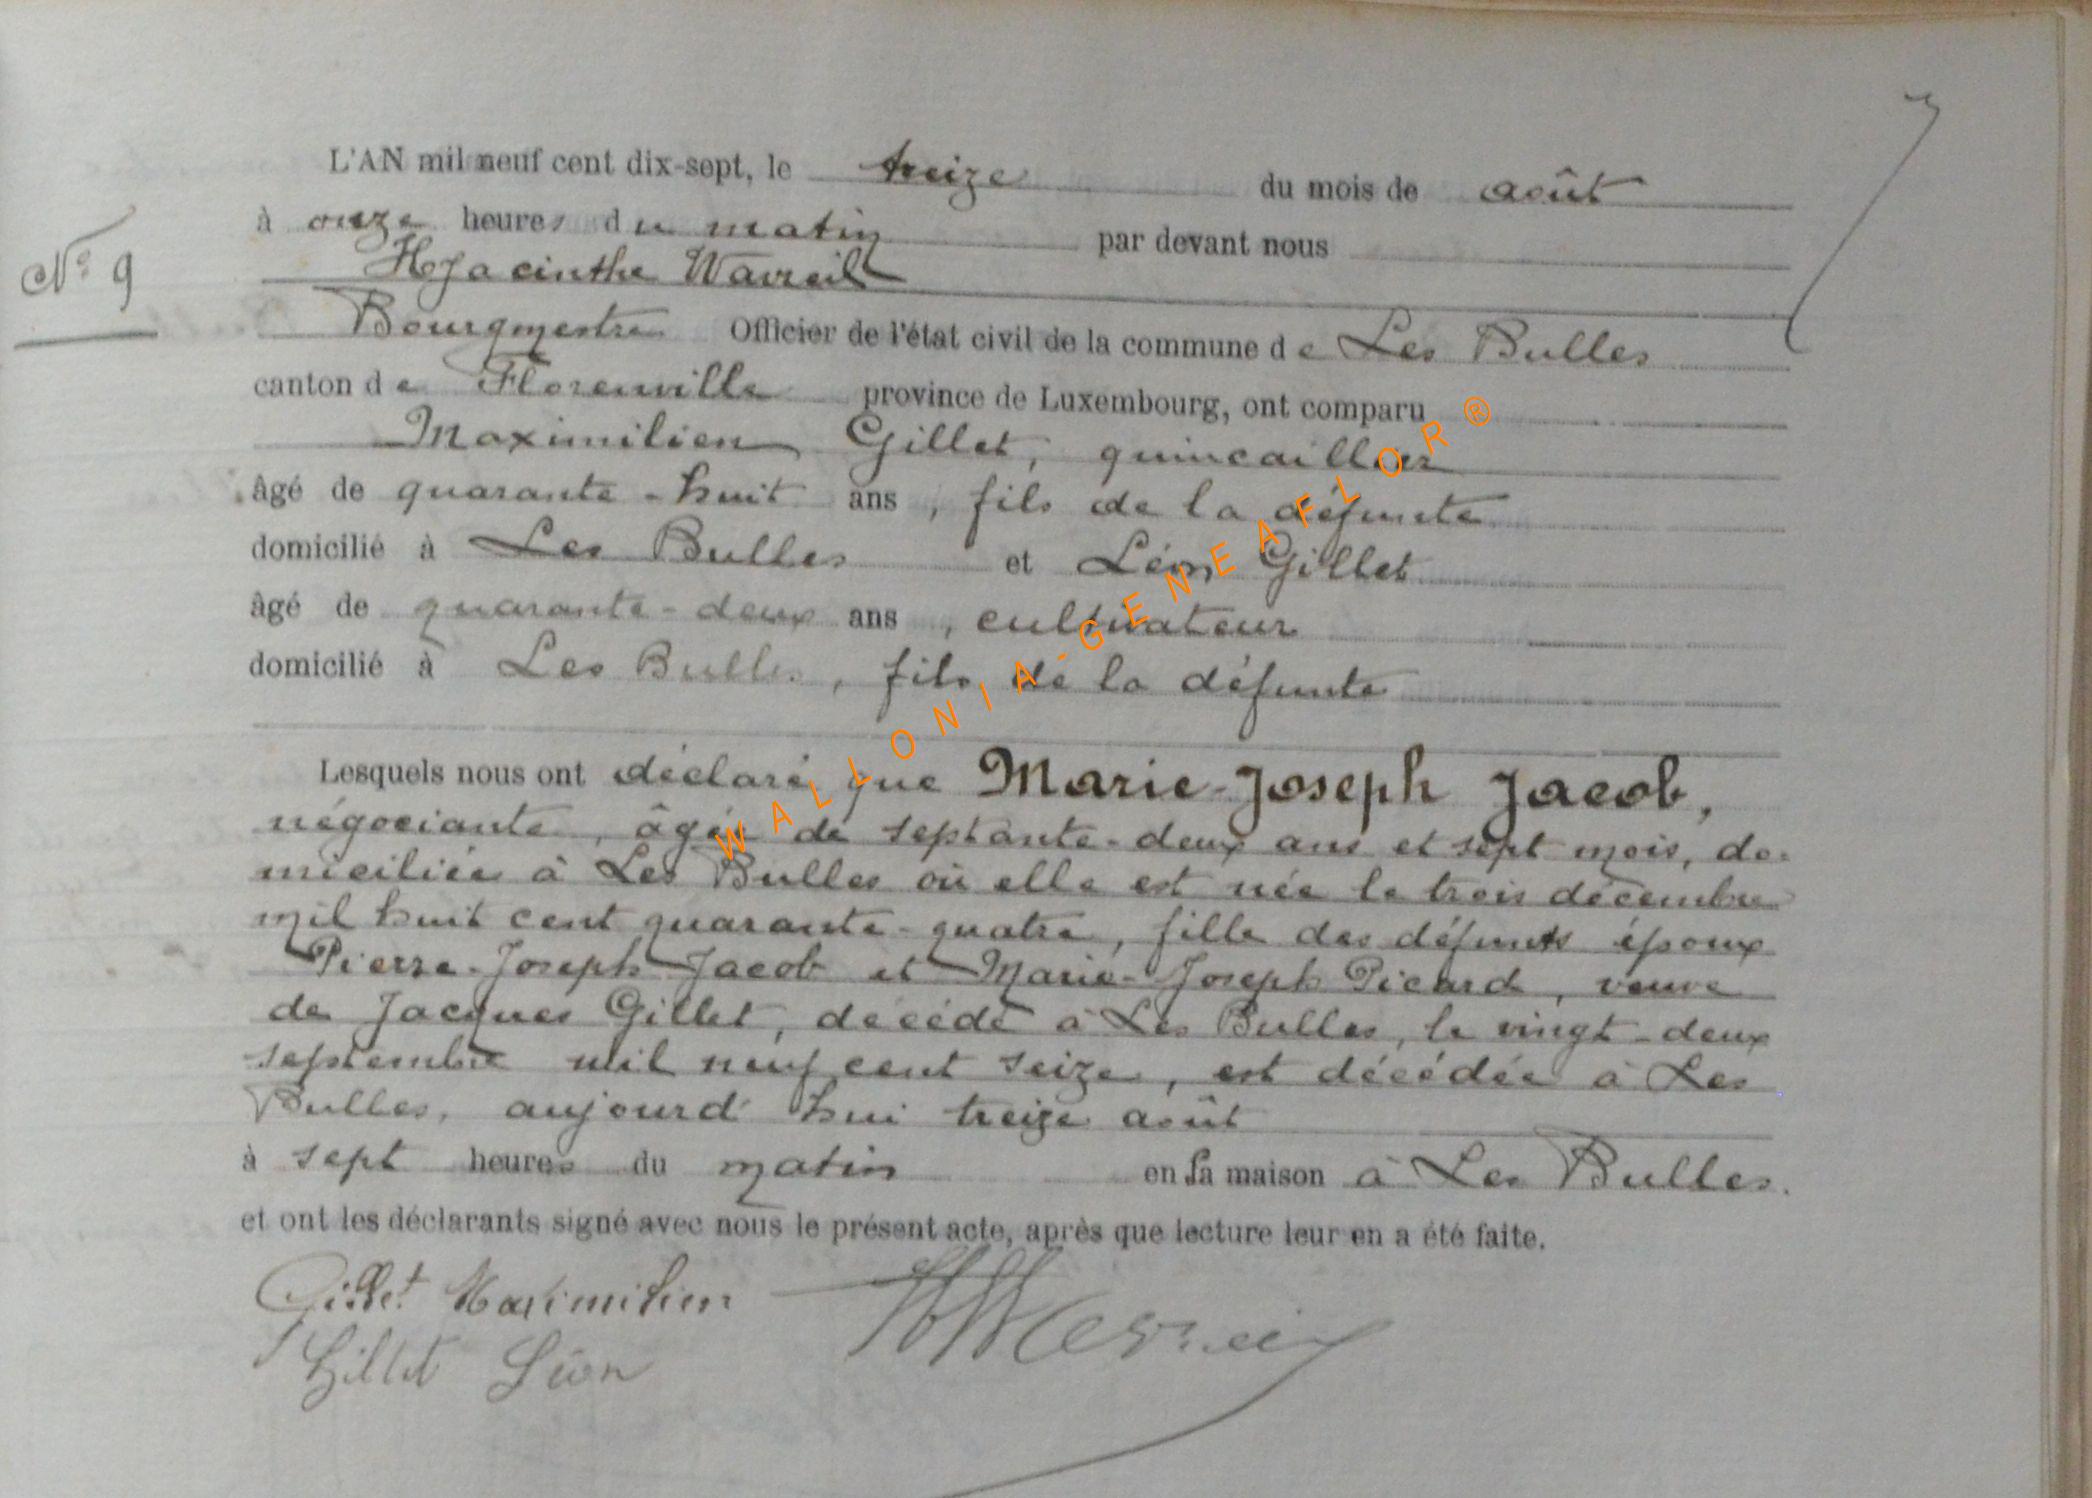 L'AN mil neuf cent dix-sept, le treize du mois de août
à onze heures du matin par devant nous
N° 9
Hyacinthe Wavreil
Bourgmestre Officier de l'état civil de la commune de Les Bulles
canton de Florenville province de Luxembourg, ont comparu
Maximilien Gillet, quincaillier
âgé de quarante-huit ans, fils de la défunte
domicilié à Les Bulles et Léon Gillet
âgé de quarante-deux ans, cultivateur
domicilié à Les Bulles, fils de la défunte
Lesquels nous ont déclaré que Marie-Joseph Jacob,
négociante, âgée de septante-deux ans et sept mois, do-
miciliée à Les Bulles où elle est née le trois décembre
mil huit cent quarante-quatre, fille des défunts époux
Pierre-Joseph Jacob et Marie-Joseph Picard, veuve
de Jacques Gillet, décédé à Les Bulles, le vingt-deux
septembre mil neuf cent seize, est décédée à Les
Bulles, aujourd'hui treize août
à sept heures du matin en sa maison à Les Bulles.
et ont les déclarants signé avec nous le présent acte, après que lecture leur en a été faite.
Gillet Maximilien
Gillet Léon
WALLONIA-GENEAFLOR®